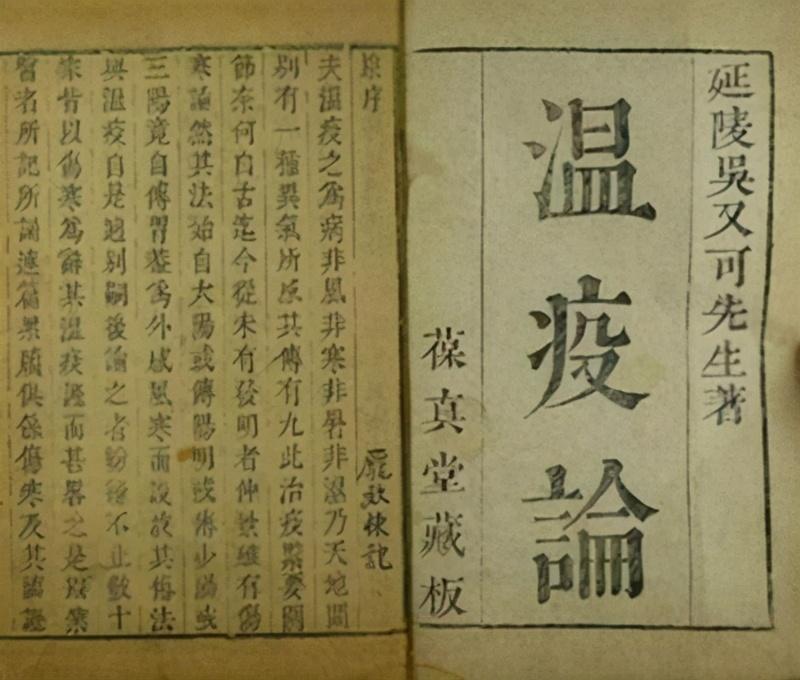 延陵吳又可先生著
温疫論
葆真堂藏板
原序
夫温疫之爲病非風非寒非暑非濕乃天地間
別有一種異氣所感其傳有九此治疫緊要關
節奈何自古迄今從未有發明者仲景雖有傷
寒論然其法始自太陽或傳陽明或傳少陽或
三陽竟自傳胃蓋爲外感風寒而設故其傳法
與温疫自是迥別嗣後論之者紛紛不止數十
家皆以傷寒爲辭其温疫證而甚畧之是以業
醫者所記所誦連篇累牘俱係傷寒及其臨證